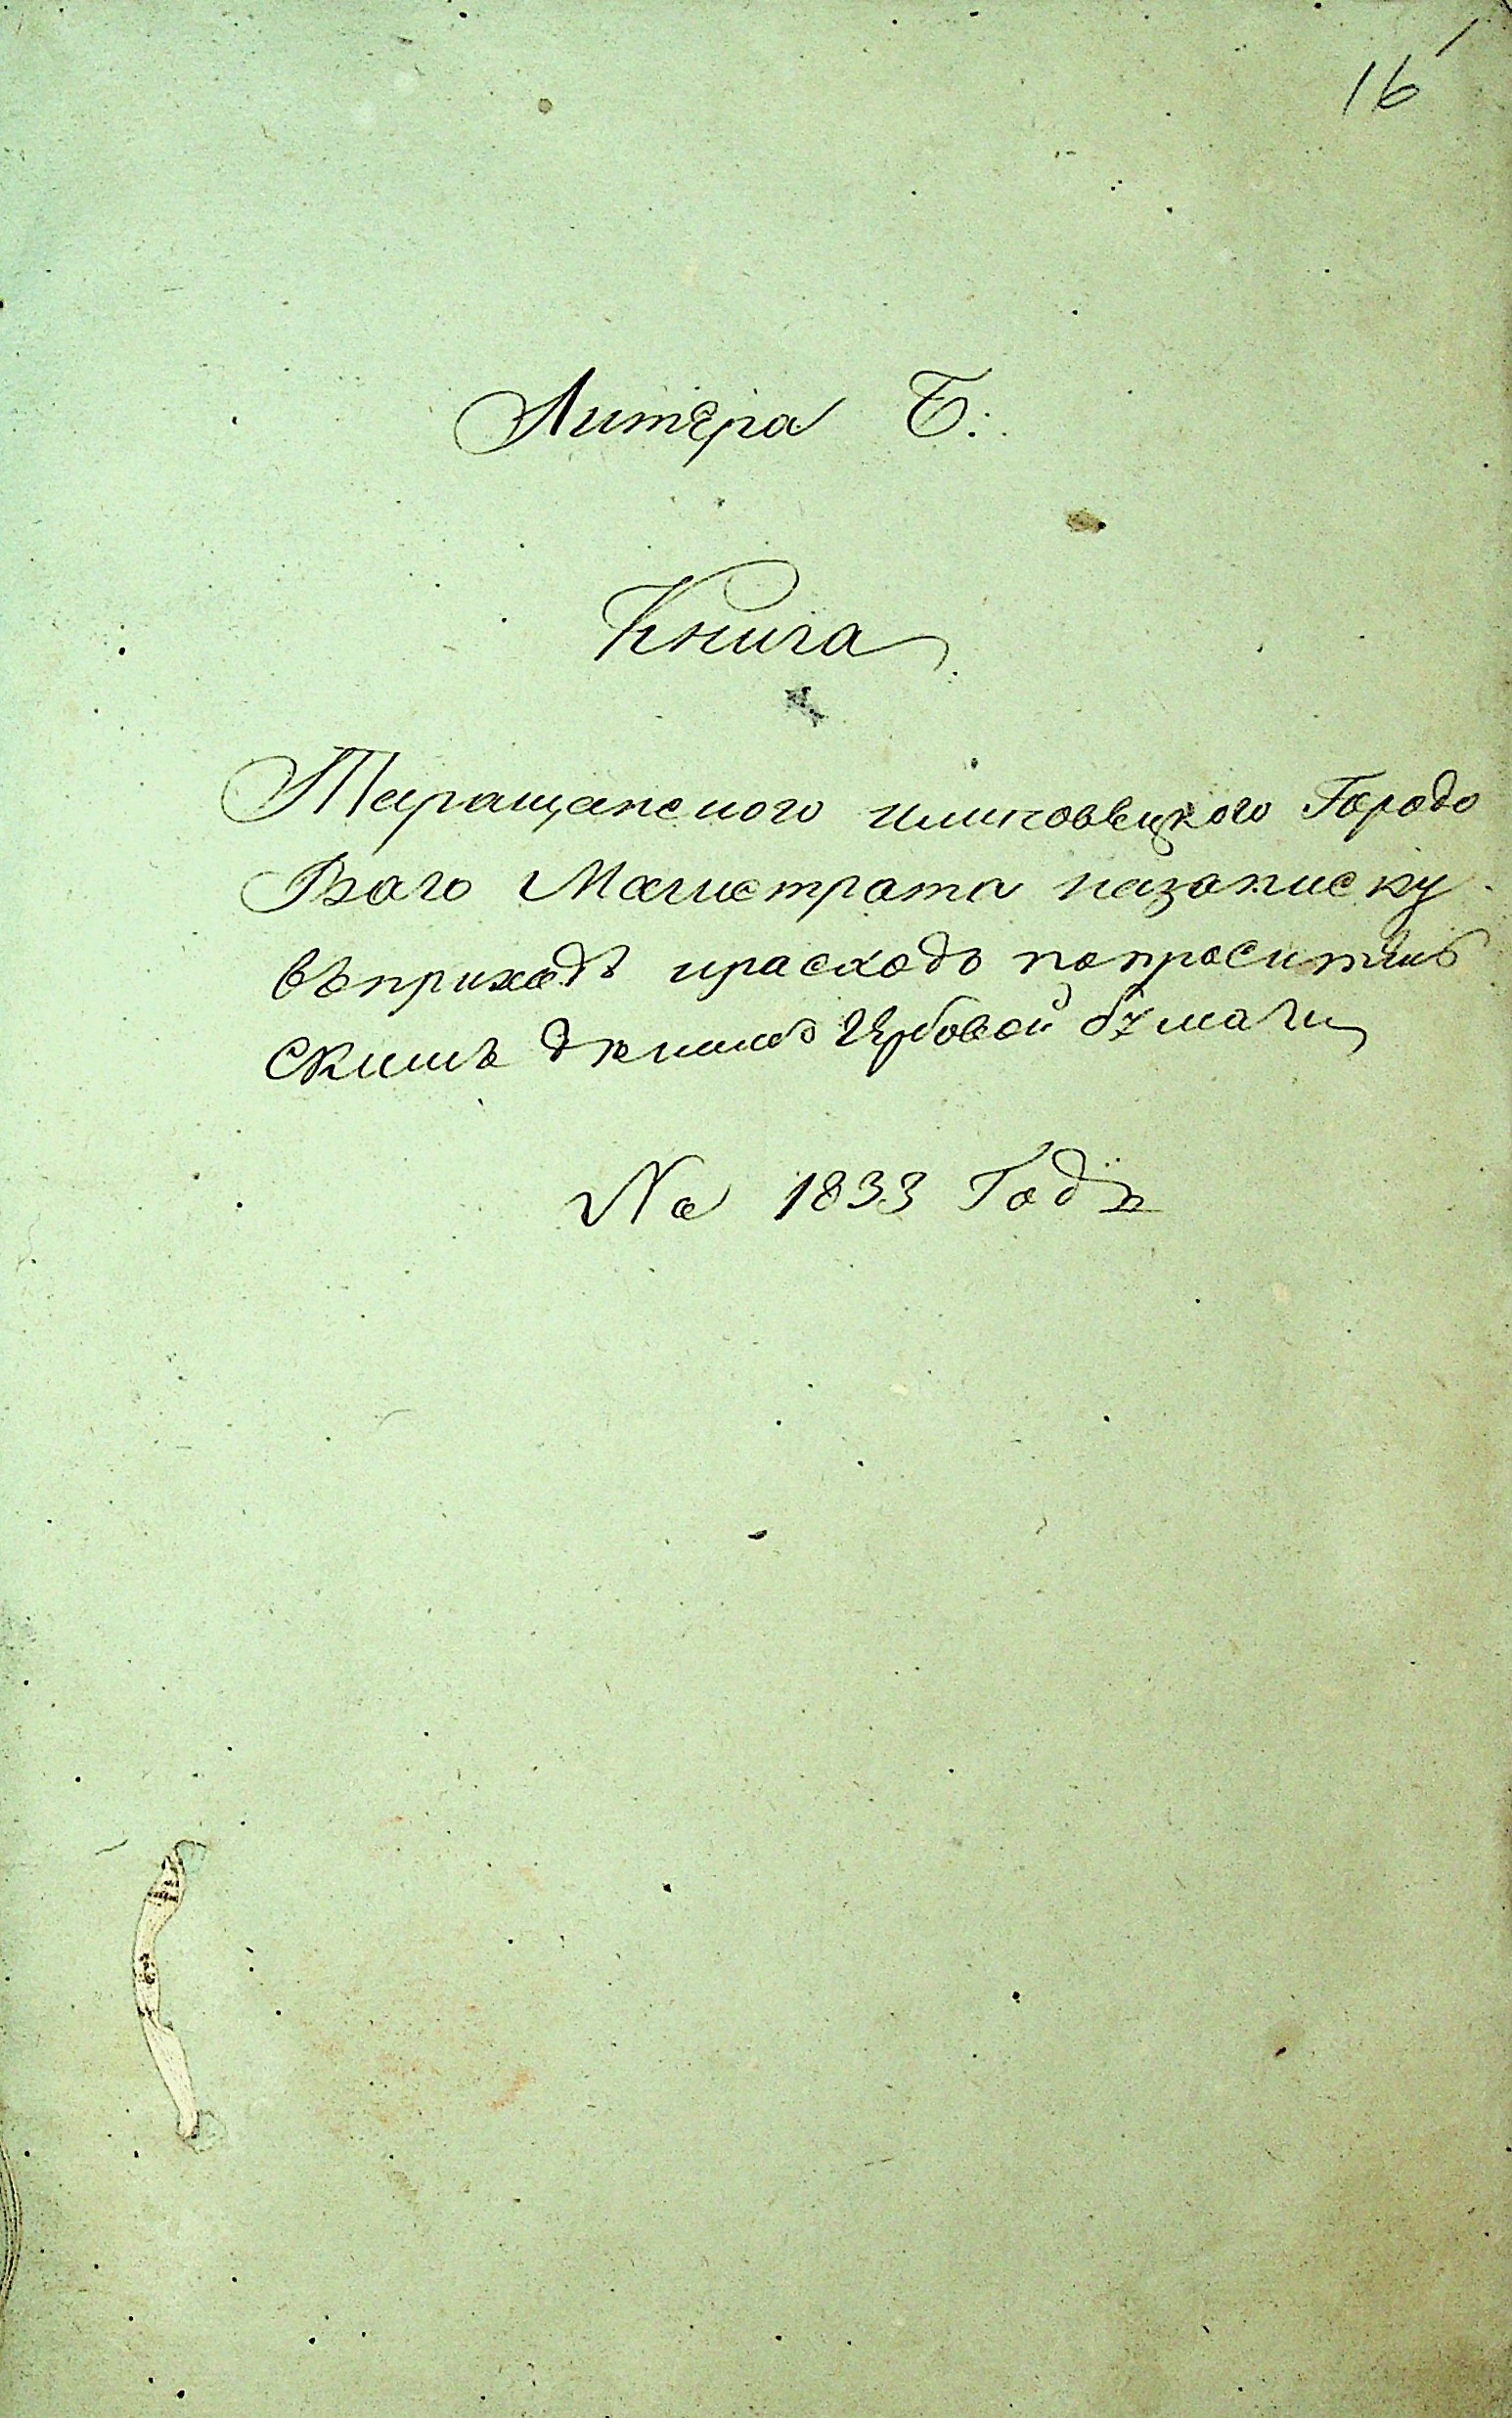 16
Литера Б:
Книга
Таращанского илиповецкого Городо
Ваго Магистрата назаписку
въприходъ ирасходъ попроситель
скимъ дѣламъ Гербовой бумаги
На 1833 Годъ